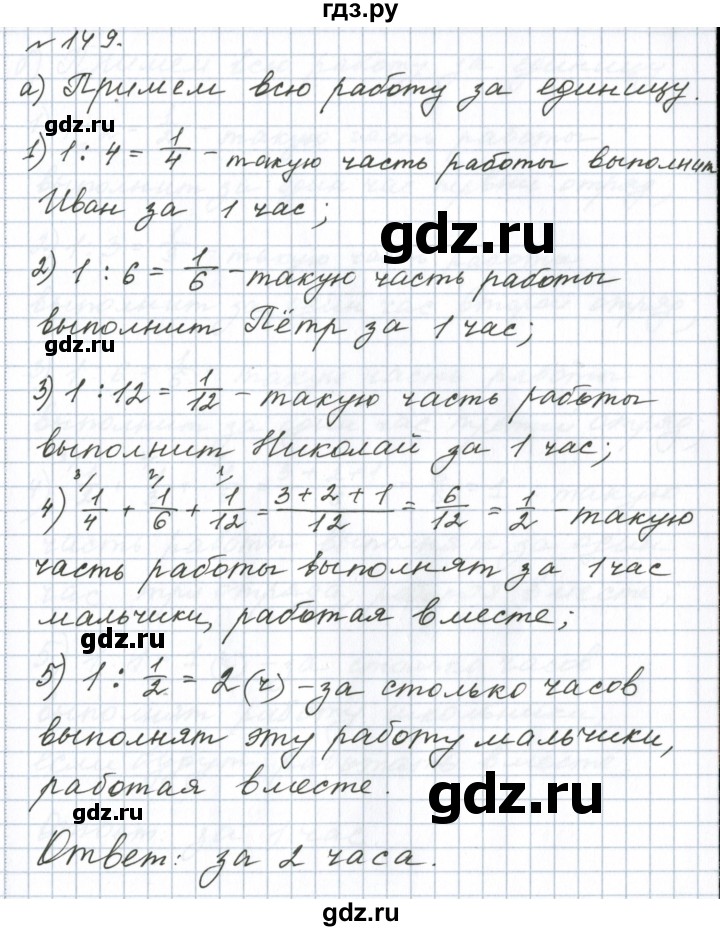 гдз.ру
№ 149.
а) Примем всю работу за единицу.
gdz.ru
1) 1 : 4 = 1/4 - такую часть работы выполнит
Иван за 1 час;
gdz.ru
2) 1 : 6 = 1/6 - такую часть работы
выполнит Пётр за 1 час;
gdz.ru
3) 1 : 12 = 1/12 - такую часть работы
выполнит Николай за 1 час;
4) 3/ 1/4 + 2/ 1/6 + 1/ 1/12 = (3+2+1)/12 = 6/12 = 1/2 - такую
часть работы выполнят за 1 час
мальчики, работая вместе;
gdz.ru
5) 1 : 1/2 = 2 (ч) - за столько часов
выполнят эту работу мальчики,
работая вместе.
gdz.ru
Ответ: за 2 часа.
gdz.ru